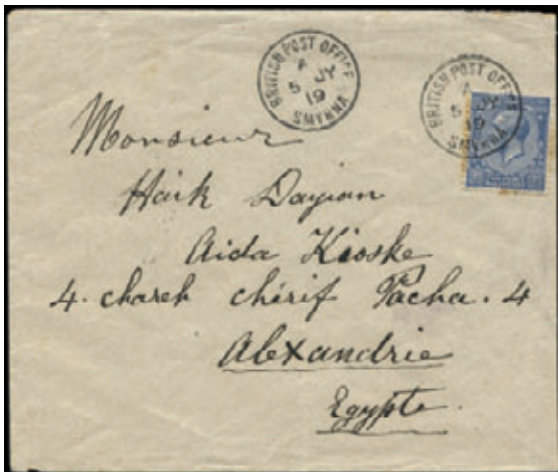 BRITISH POST OFFICE
A
5 JY
19
SMYRNA
BRITISH POST OFFICE
A
5 JY
19
SMYRNA
Monsieur
Haïk Dayian
Aida Kioske
4. chareh chérif Pacha. 4
Alexandrie
Egypte.